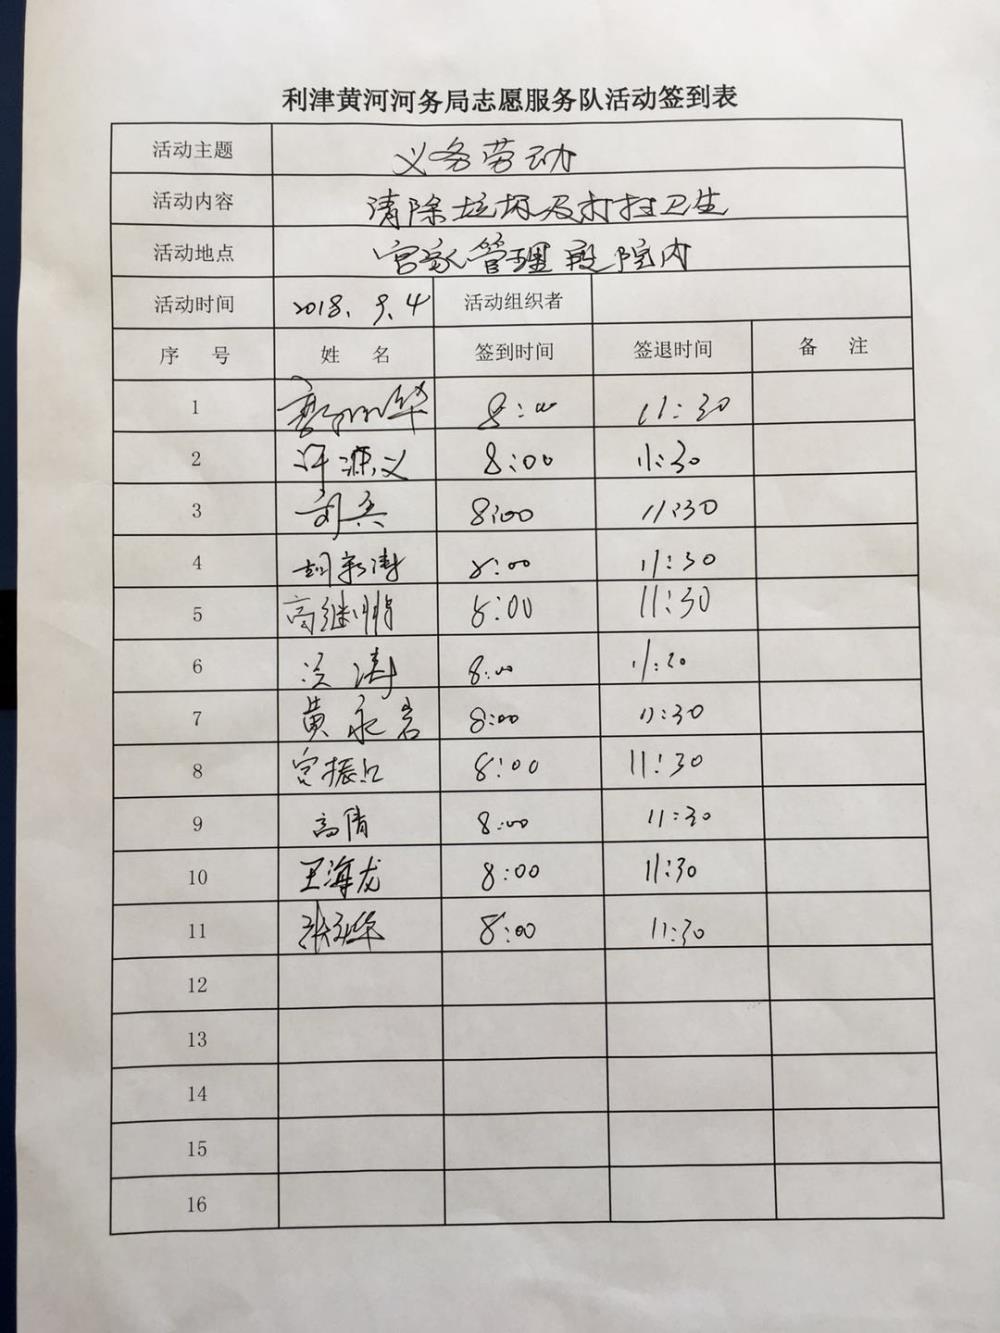 利津黄河河务局志愿服务队活动签到表
活动主题 义务劳动
活动内容 清除垃圾及打扫卫生
活动地点 宫家管理段院内
活动时间 2018.9.4 活动组织者
序 号 姓 名 签到时间 签退时间 备 注
1 8:00 11:30
2 许源义 8:00 11:30
3 刘兵 8:00 11:30
4 胡新涛 8:00 11:30
5 高继鹏 8:00 11:30
6 涛 8:00 11:30
7 黄永岩 8:00 11:30
8 宫振江 8:00 11:30
9 高倩 8:00 11:30
10 王海龙 8:00 11:30
11 8:00 11:30
12
13
14
15
16